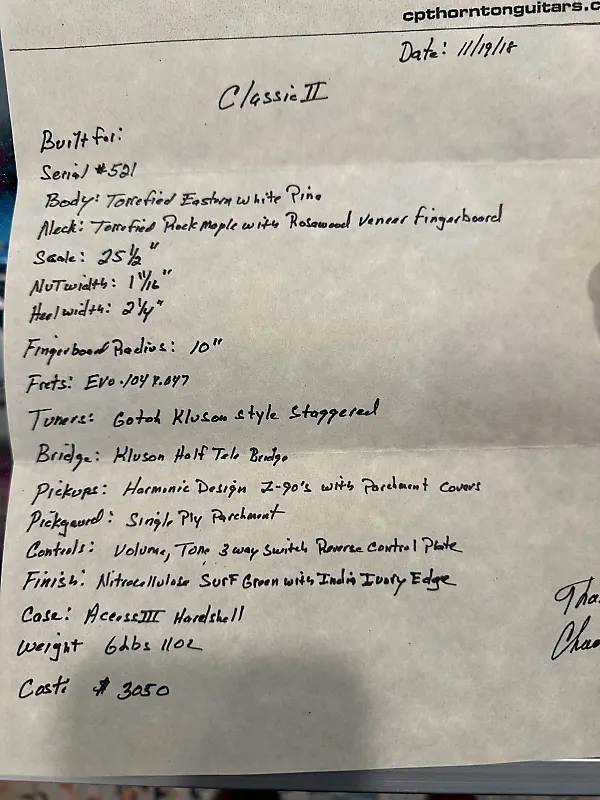 cpthorntonguitars.c
Date: 11/19/18
Classic II
Built for:
Serial #521
Body: Torrefied Eastern White Pine
Neck: Torrefied Rock maple with Rosewood Veneer Fingerboard
Scale: 25 1/2"
Nut width: 1 11/16"
Heel width: 2 1/4"
Fingerboard Radius: 10"
Frets: Evo .104 x .047
Tuners: Gotoh Kluson Style Staggered
Bridge: Kluson Half Tele Bridge
Pickups: Harmonic Design Z-90's with Parchment Covers
Pickgaurd: Single Ply Parchment
Controls: Volume, Tone 3 way Switch Reverse Control Plate
Finish: Nitrocellulose Surf Green with India Ivory Edge
Tha
Case: Access III Hardshell
Weight 6Lbs 11oz
Cost: $ 3050